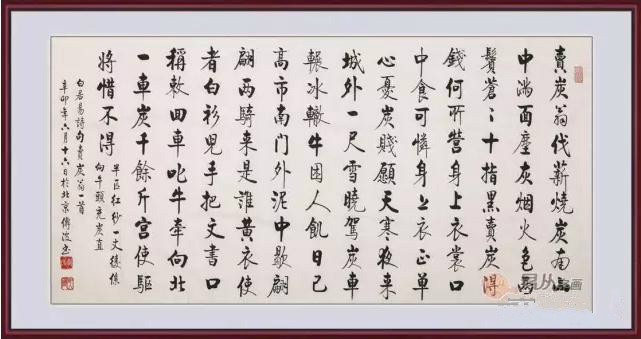 賣炭翁伐薪燒炭南山
中滿面塵灰烟火色兩
鬢蒼〻十指黑賣炭得
錢何所營身上衣裳口
中食可憐身上衣正單
心憂炭賤願天寒夜来
城外一尺雪曉駕炭車
輾冰轍牛困人飢日已
高市南門外泥中歇翩
翩兩騎来是誰黃衣使
者白衫兒手把文書口
稱敕回車叱牛牽向北
一車炭千餘斤宮使驅
將惜不得
半匹红紗一丈綾係
向牛頭充炭直
白居易詩句賣炭翁一首
辛卯年六月十六日於北京傅波書
易从字画